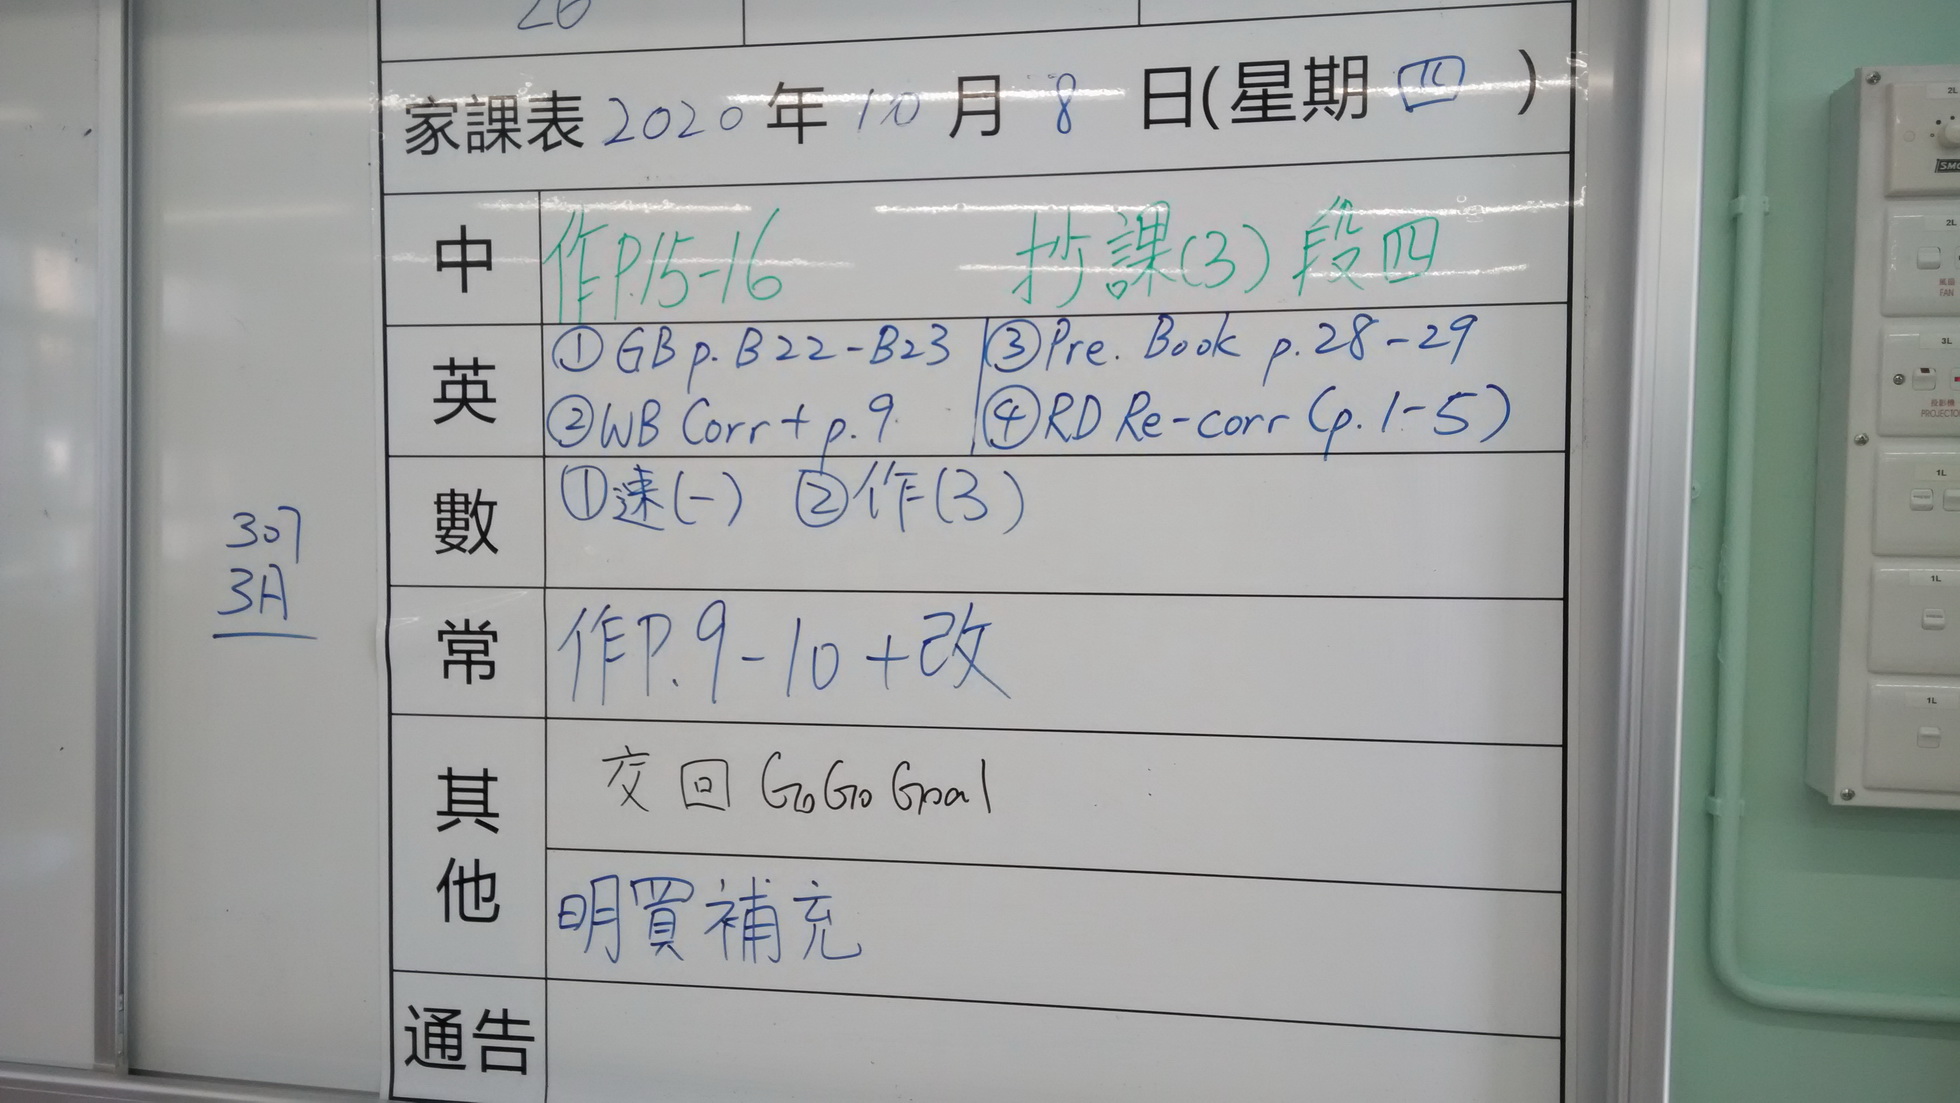 26
家課表 2020 年 10 月 8 日(星期 四 )
中 作P.15-16 抄課(3) 段四
英 ①GB p. B22-B23 ③Pre. Book p.28-29
②WB Corr + p.9 ④RD Re-corr (p.1-5)
數 ①速(一) ②作(3)
307
3A
常 作P.9-10+改
其他 交回 GoGo Goal
明買補充
通告
2L
2L
風扇
FAN
3L
投影機
PROJECTOR
1L
1L
1L